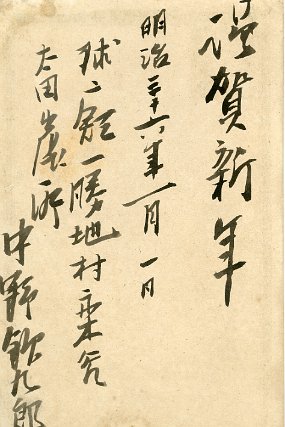 謹賀新年
明治三十六年一月一日
一勝地村
太田出張所
中野欽九郎